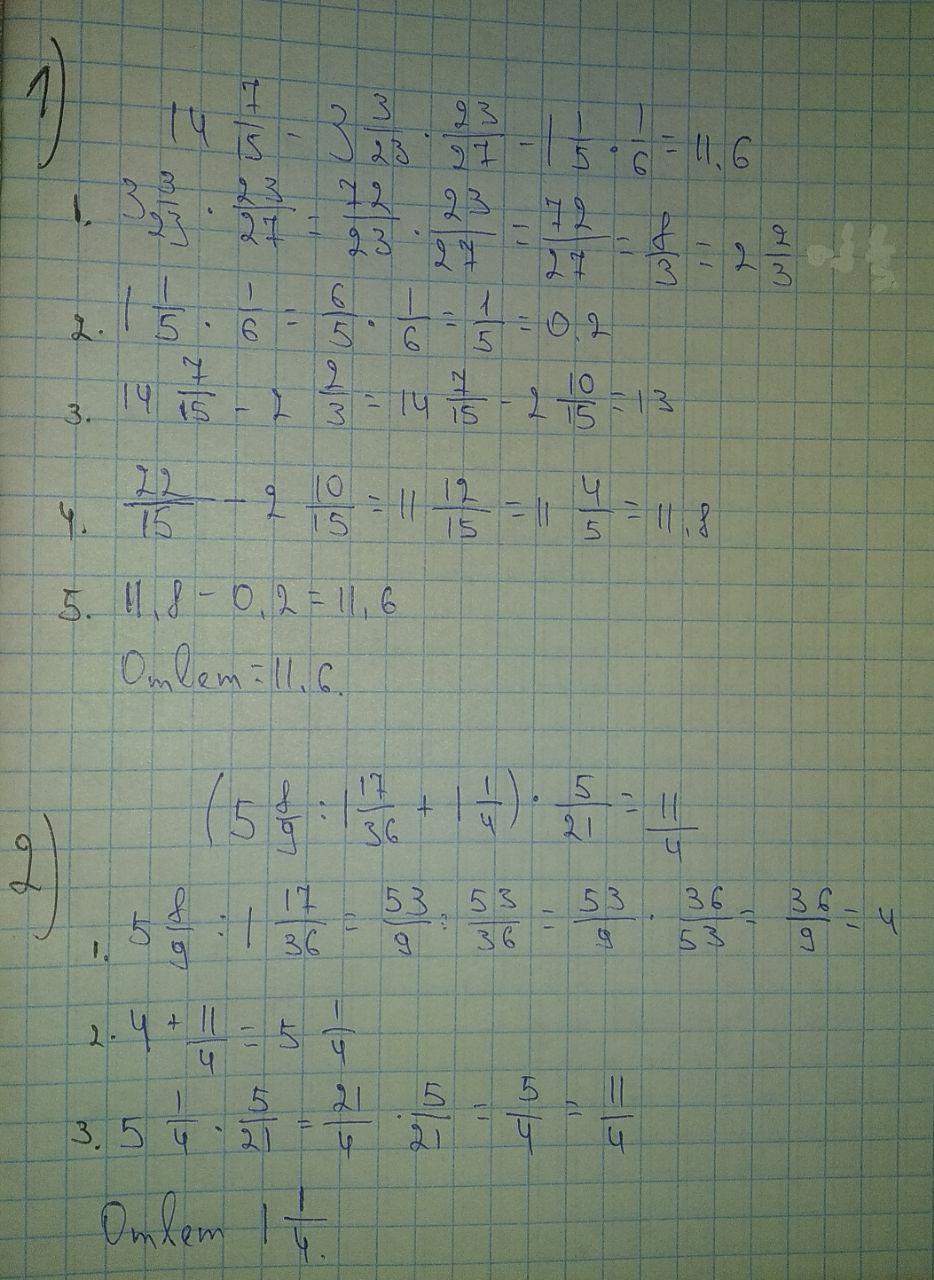 1)
14 7/15 - 3 3/23 · 23/27 - 1 1/5 · 1/6 = 11,6
1. 3 3/23 · 23/27 = 72/23 · 23/27 = 72/27 = 8/3 = 2 2/3
2. 1 1/5 · 1/6 = 6/5 · 1/6 = 1/5 = 0,2
3. 14 7/15 - 2 2/3 = 14 7/15 - 2 10/15 = 13
4. 22/15 - 2 10/15 = 11 12/15 = 11 4/5 = 11,8
5. 11,8 - 0,2 = 11,6
Ответ = 11,6.
2)
(5 8/9 : 1 17/36 + 1 1/4) · 5/21 = 11/4
1. 5 8/9 : 1 17/36 = 53/9 : 53/36 = 53/9 · 36/53 = 36/9 = 4
2. 4 + 11/4 = 5 1/4
3. 5 1/4 · 5/21 = 21/4 · 5/21 = 5/4 = 11/4
Ответ 1 1/4.